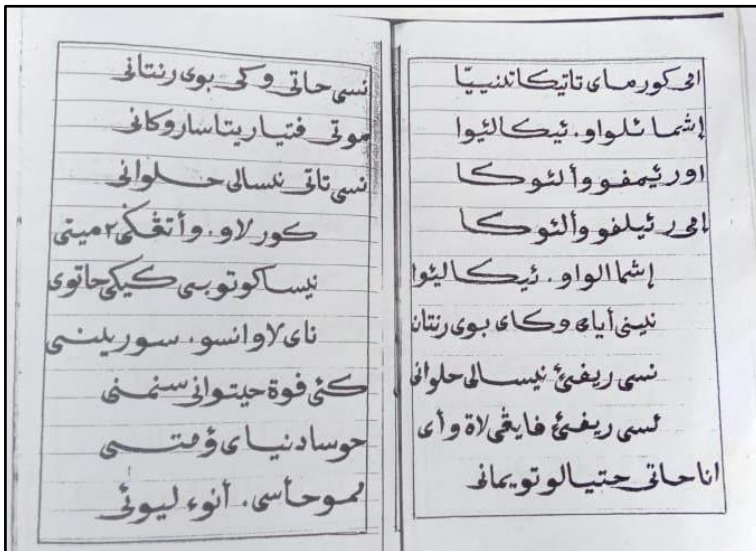 امى كور ماى تاتيكا تننييّا
إشما ئلواو. ئيكالئيوا
اور ئيمفو وألئوكا
امى رئيلفو وألئوكا
إشما الواو. ئيكاليئوا
نيني أياى وكاى بوى رنتان
نسى ريفئ نيسالى حلوانى
لسى ريفئ فايڤى لاة وأى
انا حاتى حتيالو تويمانى
نسى حاتى وكى بوى رنتانى
موتى فتياريتا ساروكانى
نسى تاتى نيسالى حلوانى
كور لاو. وأتڤكى ٢ ميتى
نيسا كوتوبسى كيكى حاتوى
ناى لاوانسو. سوريلنسى
كئى فوة حيتوانى سنمنى
حوسا دنياى ؤمتسى
لموحأسى. أنوء ليوئى